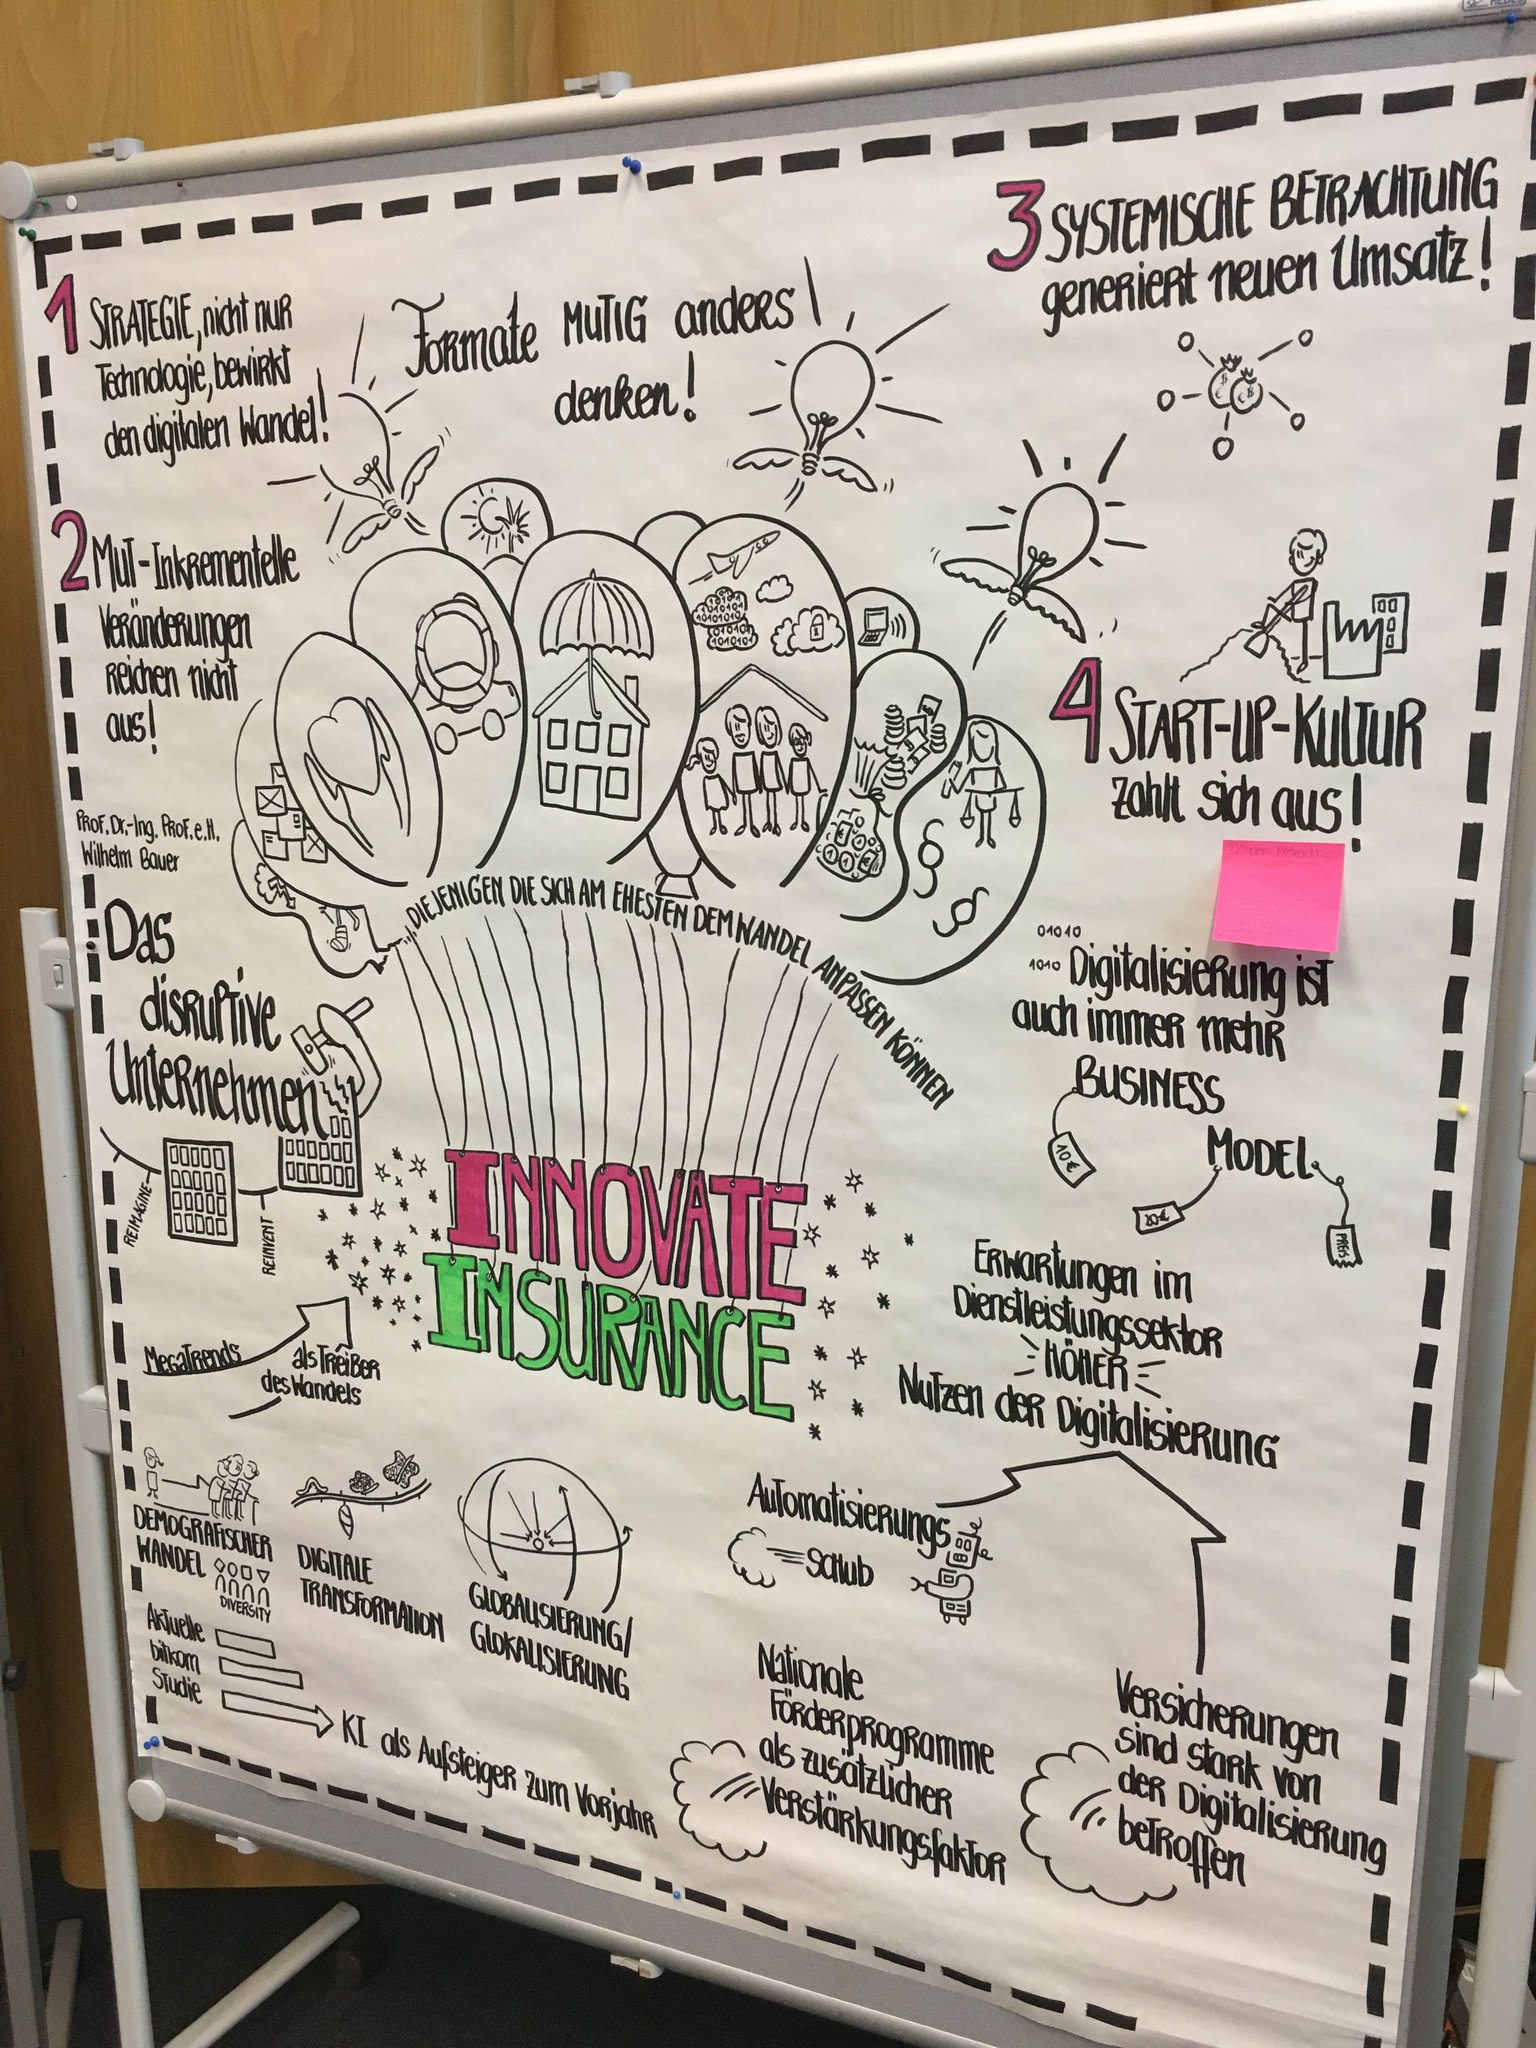 1 STRATEGIE, nicht nur
Technologie, bewirkt
den digitalen Wandel!
Formate MUTIG anders
denken!
3 SYSTEMISCHE BETRACHTUNG
generiert neuen Umsatz!
2 MUT-Inkrementelle
Veränderungen
reichen nicht
aus!
4 START-UP-KULTUR
zahlt sich aus!
Prof. Dr.-Ing. Prof. e.H.
Wilhelm Bauer
Das
disruptive
Unternehmen
REIMAGINE
REINVENT
...DIEJENIGEN DIE SICH AM EHESTEN DEM WANDEL ANPASSEN KÖNNEN
INNOVATE
INSURANCE
01010
1010 Digitalisierung ist
auch immer mehr
BUSINESS
MODEL
10€
20€
PREIS
Erwartungen im
Dienstleistungssektor
HÖHER
Nutzen der Digitalisierung
MegaTrends
als Treiber
des Wandels
DEMOGRAFISCHER
WANDEL
DIVERSITY
DIGITALE
TRANSFORMATION
GLOBALISIERUNG/
GLOKALISIERUNG
Aktuelle
bitkom
Studie
KI als Aufsteiger zum Vorjahr
Automatisierungs
Schub
Nationale
Förderprogramme
als zusätzlicher
Verstärkungsfaktor
Versicherungen
sind stark von
der Digitalisierung
betroffen